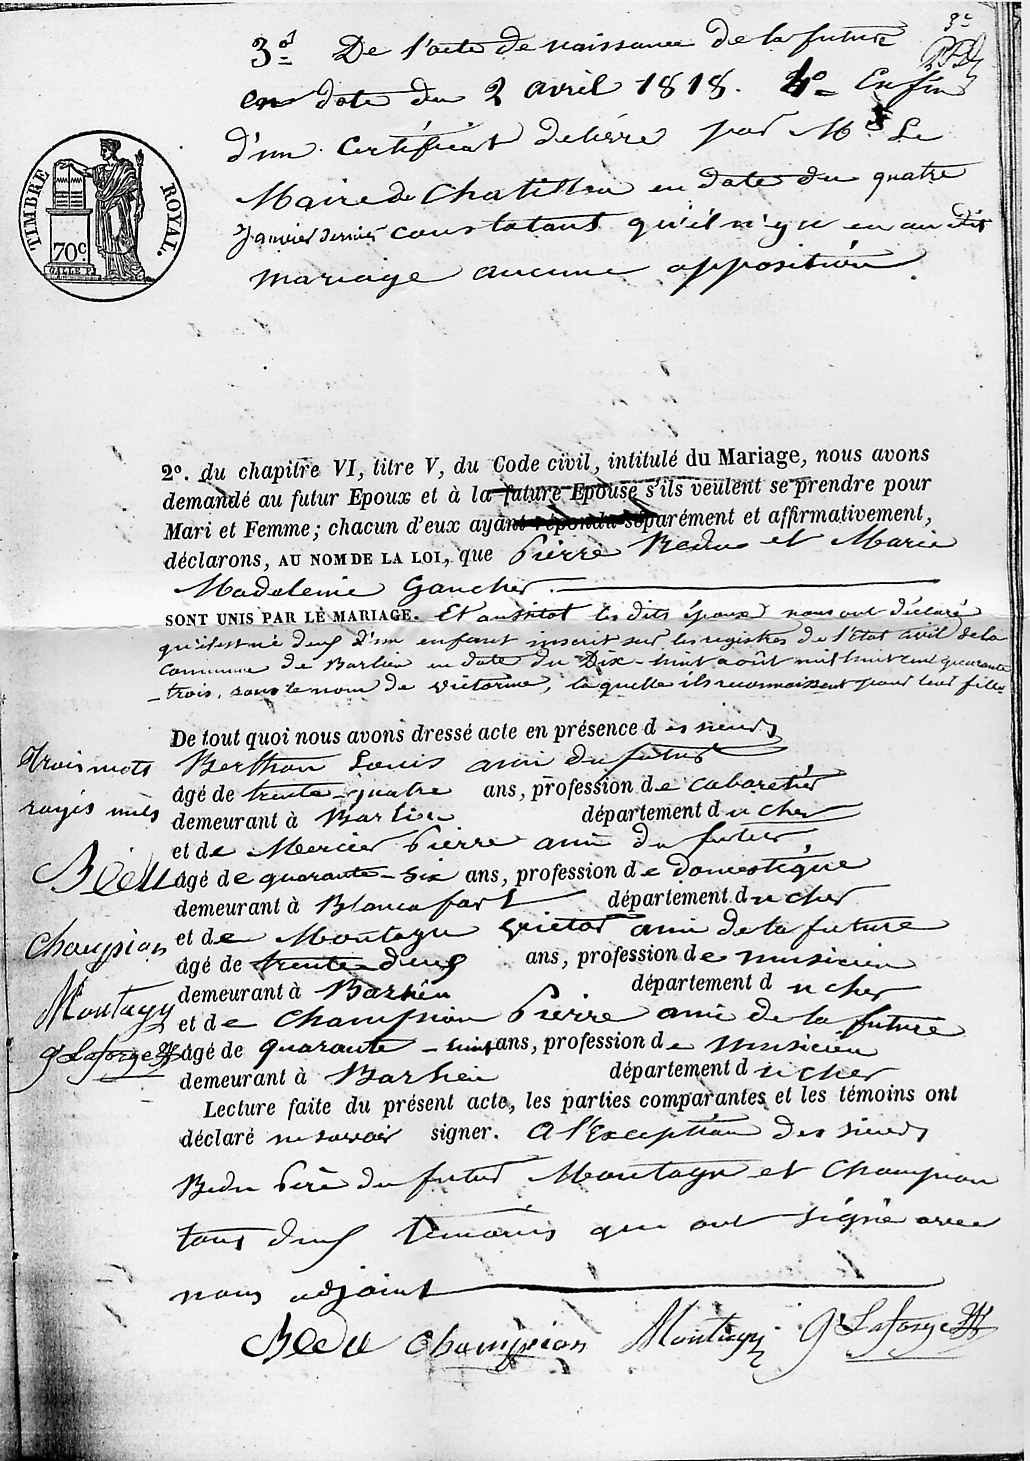 3° De l'acte de naissance de la future
en date du 2 avril 1818. 4° Enfin
d'un certificat délivré par Mr Le
Maire de Chatillon en date du quatre
Janvier dernier constatant qu'il n'y a eu au dit
mariage aucune opposition.
TIMBRE ROYAL.
70c
2°. du chapitre VI, titre V, du Code civil, intitulé du Mariage, nous avons
demandé au futur Epoux et à la future Epouse s'ils veulent se prendre pour
Mari et Femme; chacun d'eux ayant répondu séparément et affirmativement,
déclarons, AU NOM DE LA LOI, que Pierre Bedu et Marie
Madeleine Gaucher.
SONT UNIS PAR LE MARIAGE. Et aussitot les dits époux nous ont déclaré
qu'il est né d'eux d'un enfant inscrit sur les registres de l'Etat civil de la
commune de Barlieu en date du Dix-huit août mil huit cent quarante
-trois, sous le nom de Victorine, la quelle ils reconnaissent pour leur fille
De tout quoi nous avons dressé acte en présence des sieurs
Berthon Louis ami du futur
âgé de trente-quatre ans, profession de cabaretier
demeurant à Barlieu département du cher
et de Mercier Pierre ami du futur
âgé de quarante-six ans, profession de domestique
demeurant à Blancafort département du cher
et de Montagu Victor ami de la future
âgé de trente deux ans, profession de musicien
demeurant à Barlieu département du cher
et de Champion Pierre ami de la future
âgé de quarante-huit ans, profession de musicien
demeurant à Barlieu département du cher
Lecture faite du présent acte, les parties comparantes et les témoins ont
déclaré ne savoir signer. A l'Exception des sieurs
Bedu Père du futur Montagu et Champion
tous deux témoins qui ont signé avec
nous adjoint
Bedu Champion Montagu G Laforge
trois mots
rayés nuls
Bedu
Champion
Montagu
G Laforge